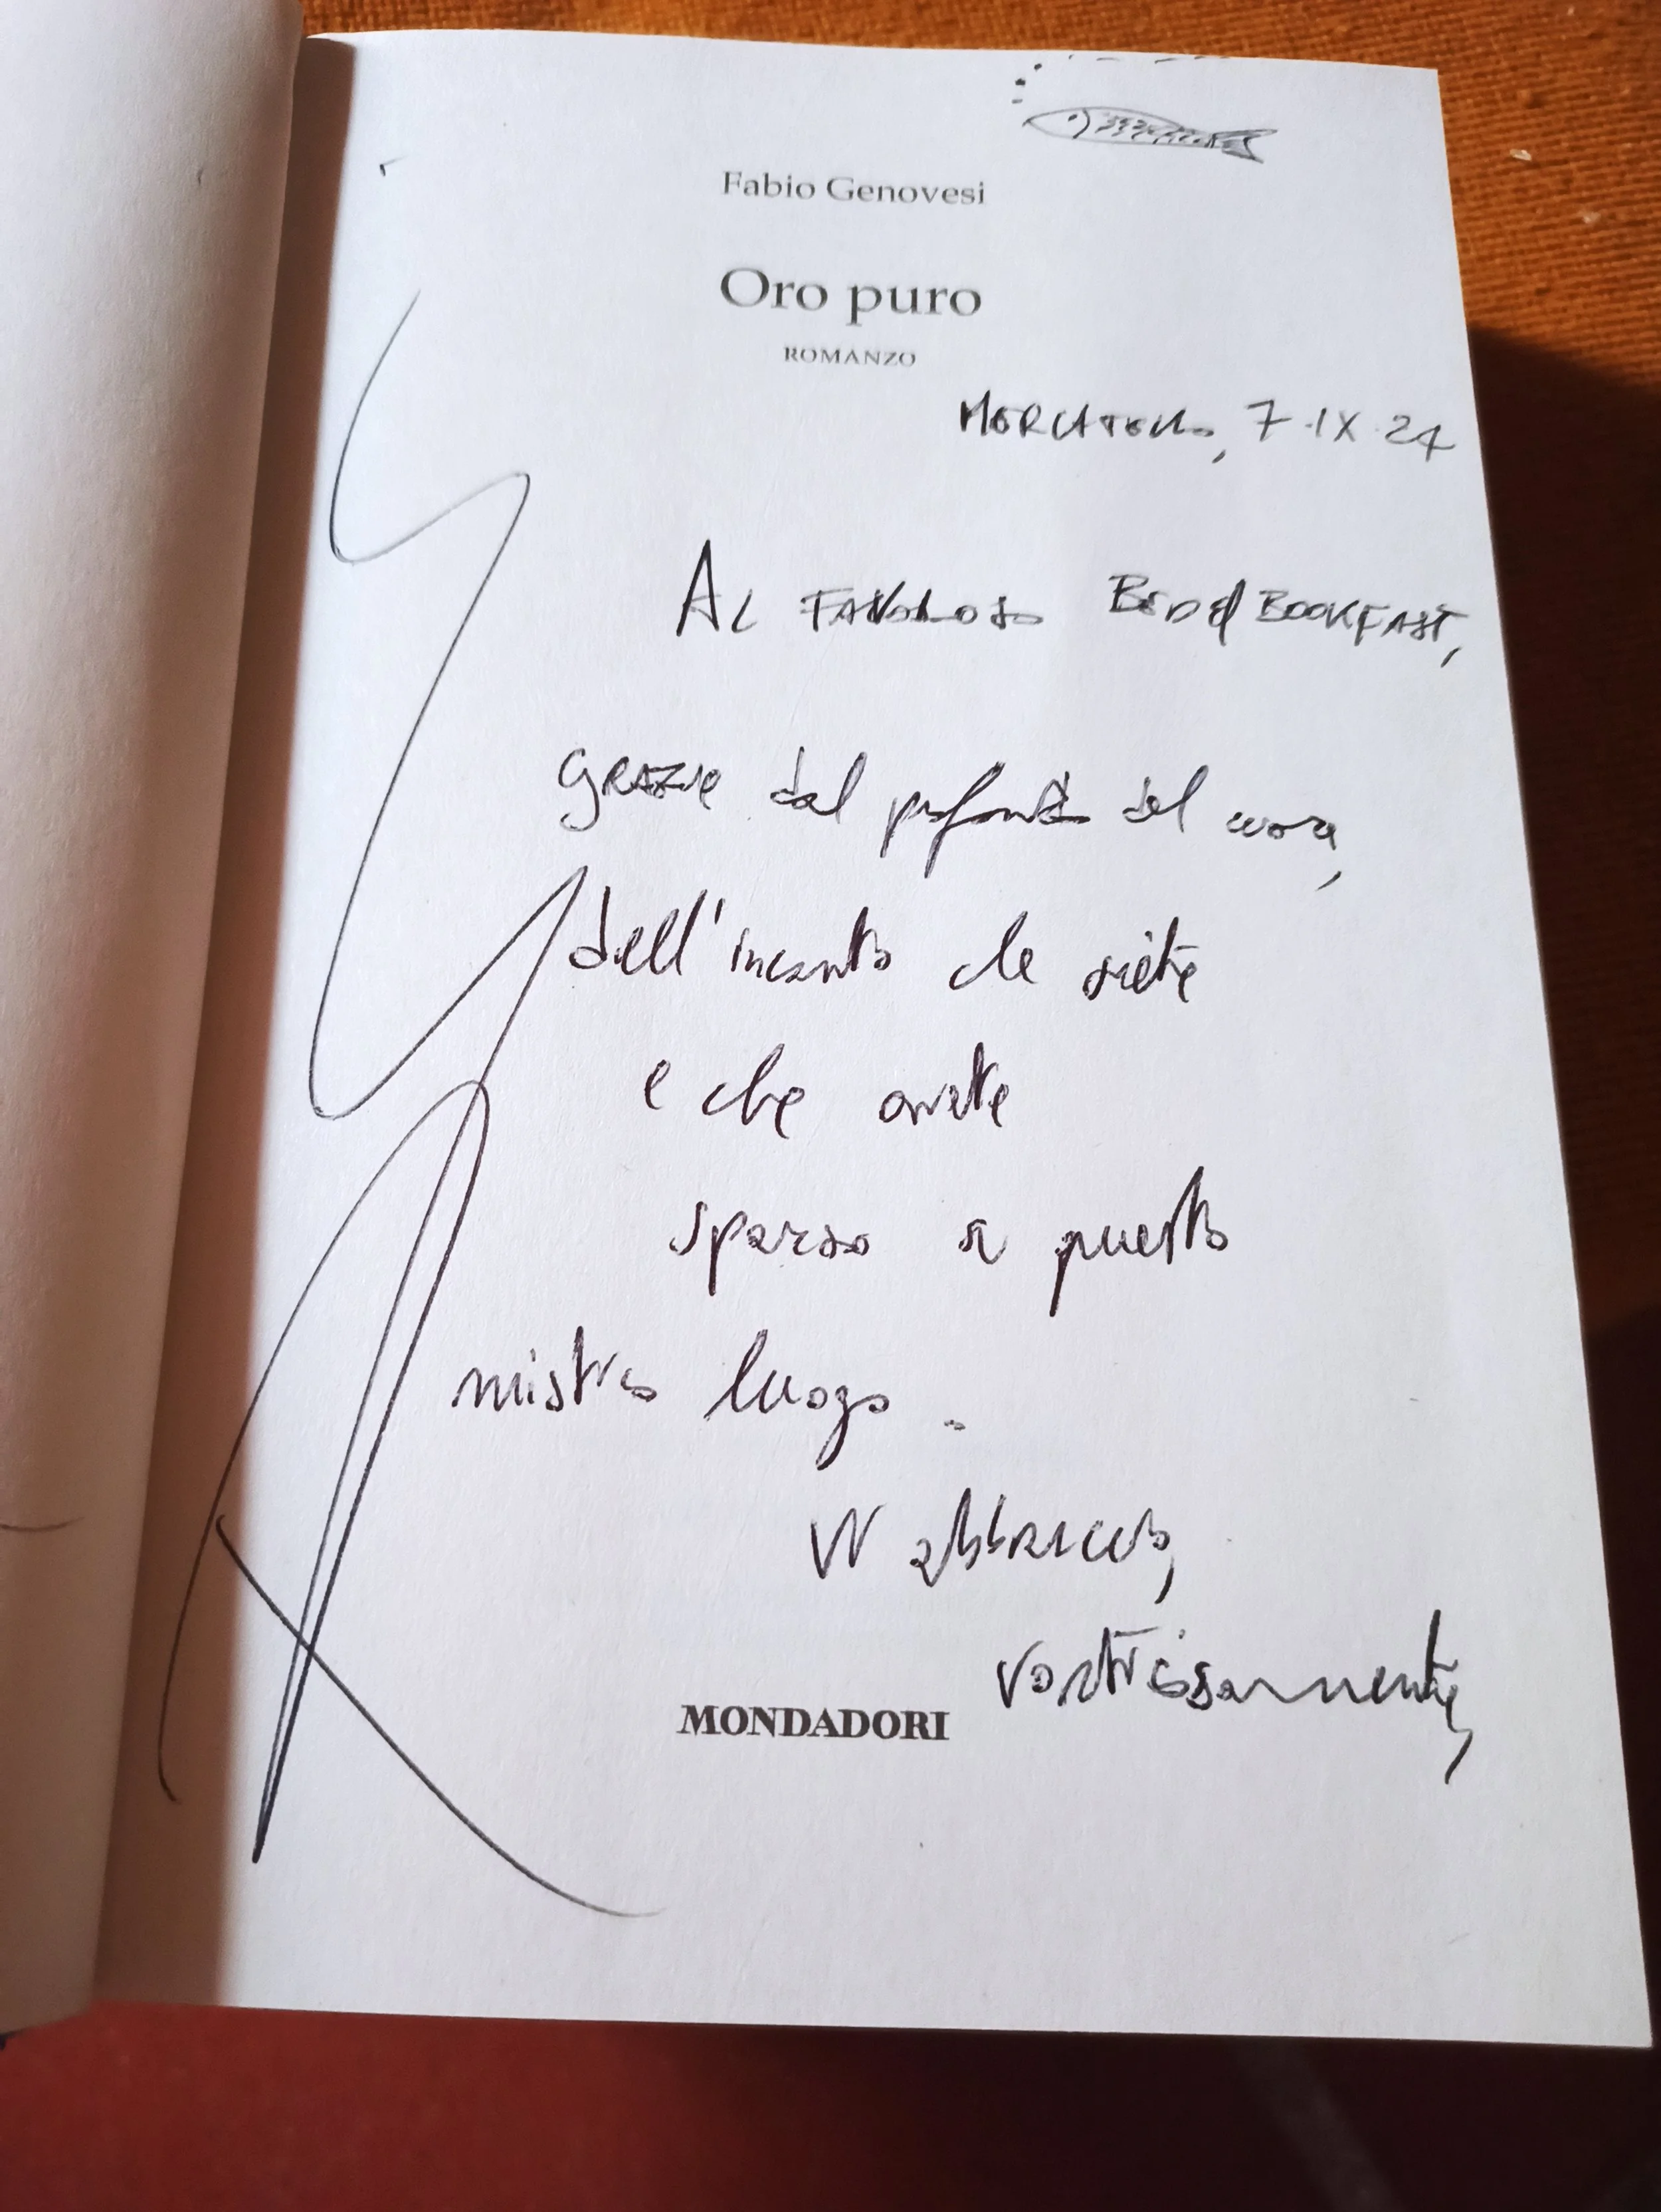 Fabio Genovesi
Oro puro
ROMANZO
MERCATELLO, 7.IX.24
AL FAVOLOSO BED & BOOKFAST,
GRAZIE dal profondo del cuore,
dell'incanto che siete
e che avete
sparso a questo
mistico luogo.
Vi abbraccio,
vostrissamente,
MONDADORI